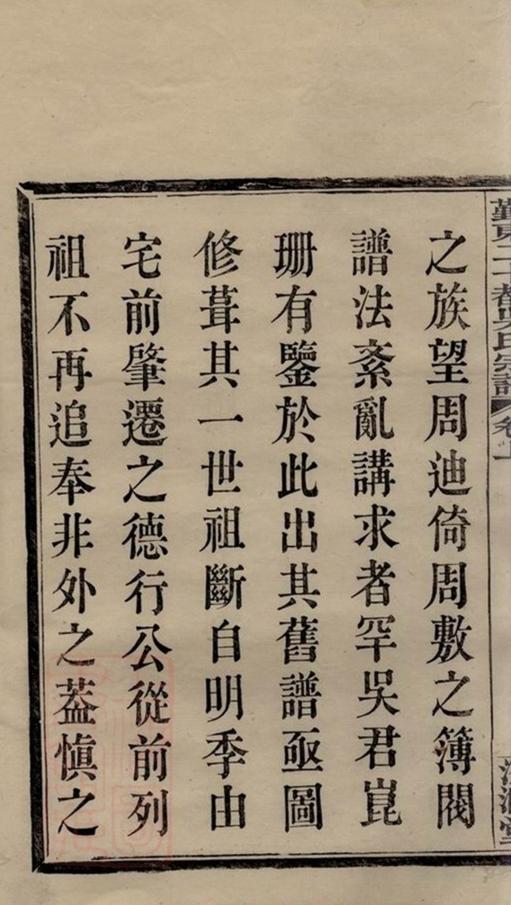 之族望周迪倚周敷之簿閥
譜法紊亂講求者罕吳君崑
珊有鑒於此出其舊譜亟圖
修葺其一世祖斷自明季由
宅前肇遷之德行公從前列
祖不再追奉非外之葢慎之